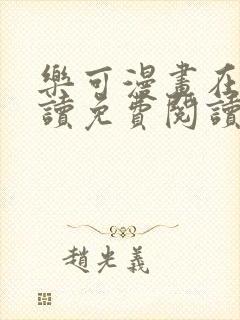 樂可漫畫在
讀免費閱讀
趙光義